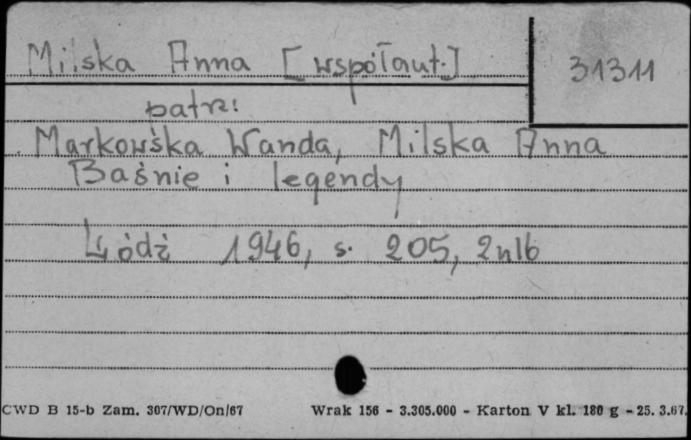 Milska Anna [współaut.]
31311
patrz:
Markowska Wanda, Milska Anna
Baśnie i legendy
Łódź 1946, s. 205, 2nlb
CWD B 15-b Zam. 307/WD/On/67 Wrak 156 - 3.305.000 - Karton V kl. 180 g - 25. 3.67.